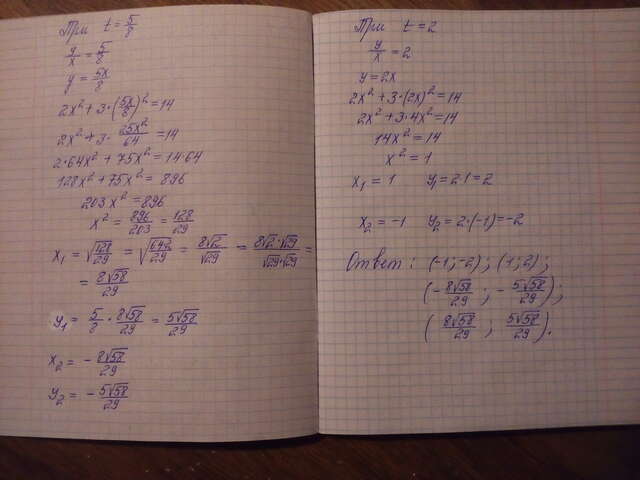 При t = 5/8
y/x = 5/8
y = 5x/8
2x² + 3·(5x/8)² = 14
2x² + 3· 25x²/64 = 14
2·64x² + 75x² = 14·64
128x² + 75x² = 896
203x² = 896
x² = 896/203 = 128/29
x₁ = √(128/29) = √(64·2/29) = 8√2/√29 = 8√2·√29/√29·√29 =
= 8√58/29
y₁ = 5/8 · 8√58/29 = 5√58/29
x₂ = - 8√58/29
y₂ = - 5√58/29
При t = 2
y/x = 2
y = 2x
2x² + 3·(2x)² = 14
2x² + 3·4x² = 14
14x² = 14
x² = 1
x₁ = 1 y₁ = 2·1 = 2
x₂ = -1 y₂ = 2·(-1) = -2
Ответ: (-1; -2); (1; 2);
(- 8√58/29 ; - 5√58/29);
(8√58/29 ; 5√58/29).